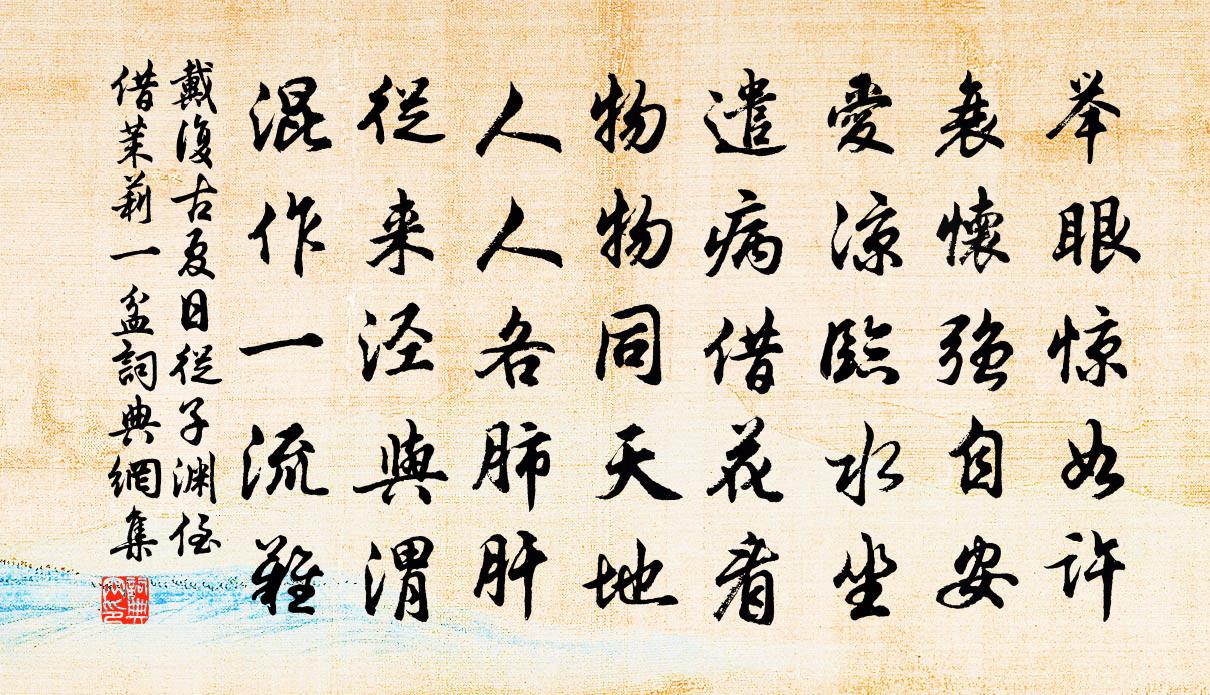 举眼惊如许
衰懷强自安
愛涼臨水坐
遣病借花看
物物同天地
人人各肺肝
從来泾與渭
混作一流難
戴復古夏日從子渊侄
借茉莉一盆詞典網集